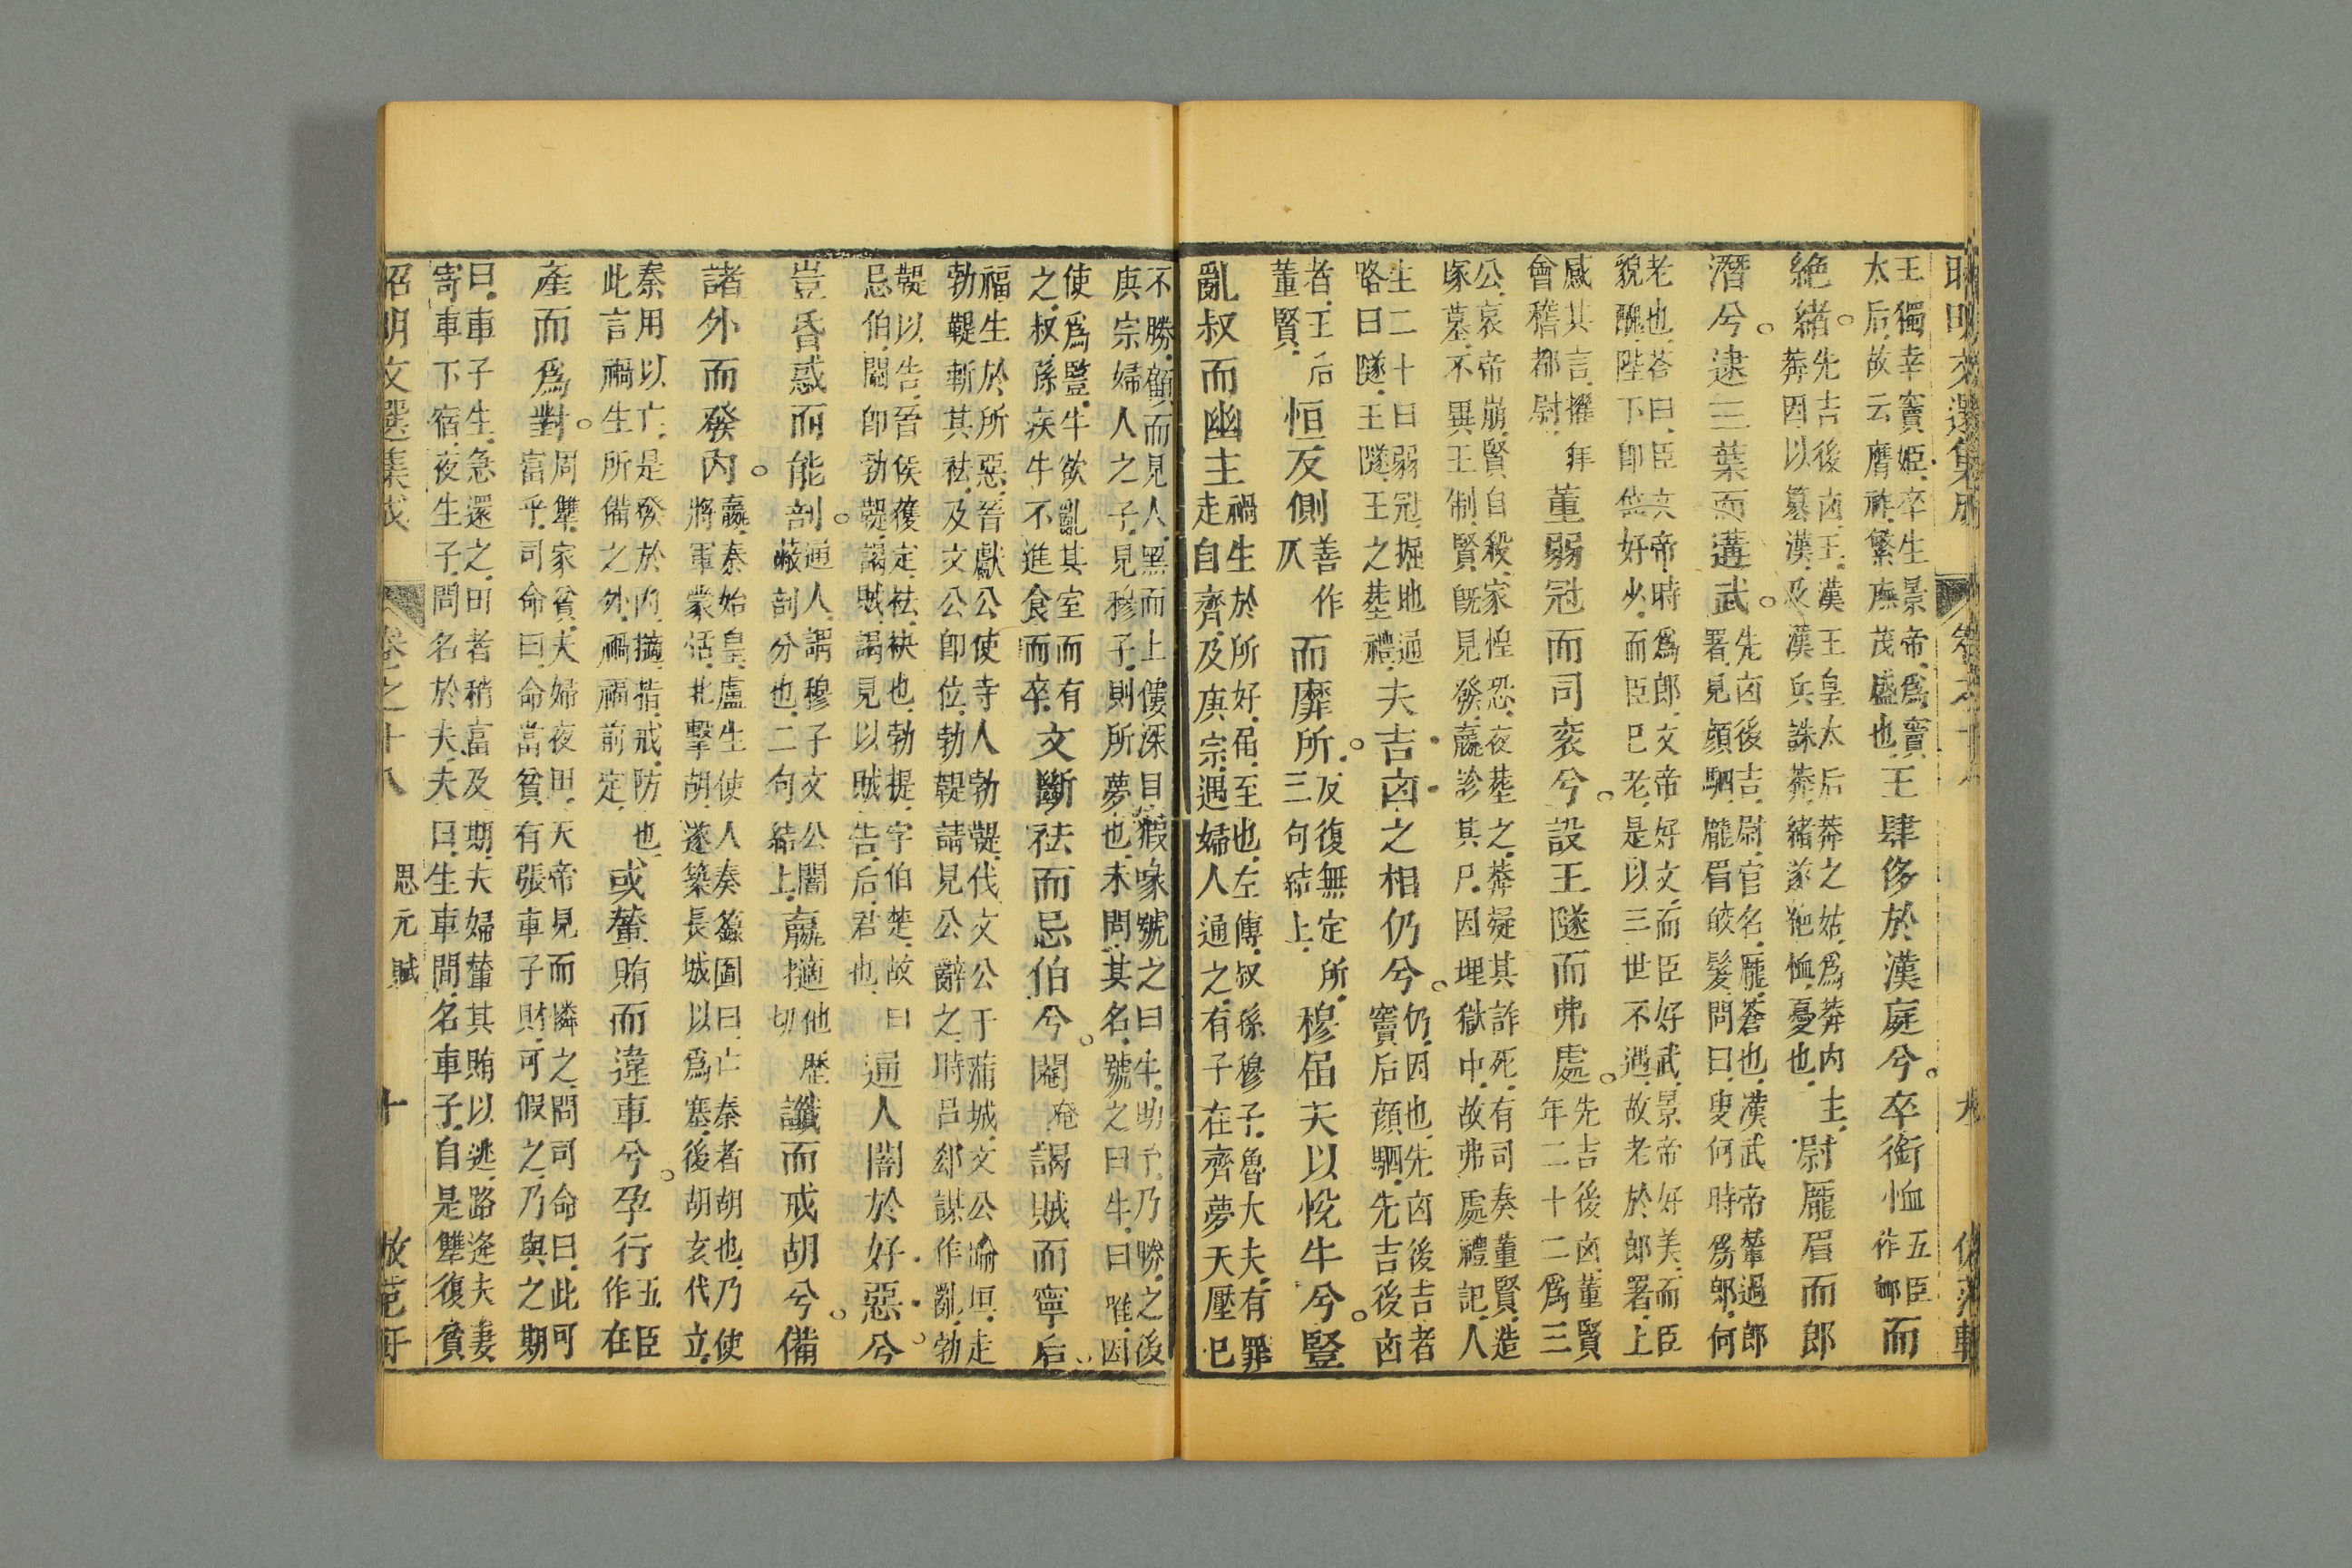 昭明文選集成 卷之十八 九 仿范軒
王獨幸竇姬.卒生景帝.爲竇
太后.故云膺祚.繁廡茂盛也.
王肆侈於漢庭兮。卒銜恤
五臣
作卹
而
絶緒。
先吉後凶.王.漢王皇太后.莽之姑.爲莽內主.
莽因以簒漢.及漢兵誅莽.緒遂絶.恤憂也.
尉厖眉而郎
潛兮。逮三葉而遘武。
先凶後吉.尉.官名.厖.蒼也.漢武帝輦過郎
署.見顔駟.龐眉皎髮.問曰.叟何時爲郎.何
老也.荅曰.臣文帝時爲郎.文帝好文.而臣好武.景帝好美.而臣
貌醜.陛下即位好少.而臣已老.是以三世不遇.故老於郎署.上
感其言.擢拜
會稽都尉.
董弱冠而司衮兮。設王隧而弗處。
先吉後凶.董賢
年二十二爲三
公.哀帝崩.賢自殺.家惶恐.夜塟之.莽疑其詐死.有司奏董賢.造
塚墓.不異王制.賢既見發.蠃診其尸.因埋獄中.故弗處.禮記.人
生二十曰弱冠.掘地通
路曰隧.王隧.王之塟禮.
夫吉凶之相仍兮。
仍.因也.先凶後吉者
竇后顔駟.先吉後凶
者.王后
董賢.
恒反側
善作
仄
而靡所。
反復無定所.
三句結上.
穆届天以悅牛兮。豎
亂叔而幽主
禍生於所好.届.至也.左傳.叔孫穆子.魯大夫.有罪
走自齊.及庚宗.遇婦人通之.有子在齊夢天壓已
不勝.顧而見人.黑而上僂深目.猳喙號之曰牛.助予.乃勝.之後
庚宗婦人之子.見穆子.則所夢也.未問其名.號之曰牛.曰唯.因
使爲豎.牛欲亂其室而有
之.叔孫疾牛不進食而卒.
文斷袪而忌伯兮。閹
奄
謁賊而寧后.
福生於所惡.晉獻公使寺人勃鞮.伐文公于蒲城.文公踰垣.走
勃鞮斬其袪.及文公即位.勃鞮請見公辭之.時呂郄謀作亂.勃
鞮以告.晉侯獲定袪.袂也.勃提.字伯楚.故曰
忌伯.閹即勃鞮.謁賊.謁見以賊告.后.君也.
通人闇於好惡兮。
豈昏惑而能剖。
通人.謂穆子文公闇
蔽.剖分也.二句結上.
嬴擿
他歷
切
讖而戒胡兮。備
諸外而發內。
嬴.秦始皇.盧生使人奏籙圖曰.亡秦者胡也.乃使
將軍蒙恬.北擊胡.遂築長城以爲塞.後胡亥代立.
秦用以亡.是發於內.擿.指.戒.防也
此言禍生所備之外.禍福前定.
或輦賄而違車兮。孕行
五臣
作在
產而爲對。
周犨.家貧.夫婦夜田.天帝見而憐之.問司命曰.此可
富乎.司命曰.命當貧有張車子財.可假之.乃與之期
曰.車子生.急還之.田者稍富及期.夫婦輦其賄以逃.路逢夫妻
寄車下宿.夜生子.問名於夫.夫曰.生車間.名車子.自是犨復貧
昭明文選集成 卷之十八 思元賦 十 仿范軒